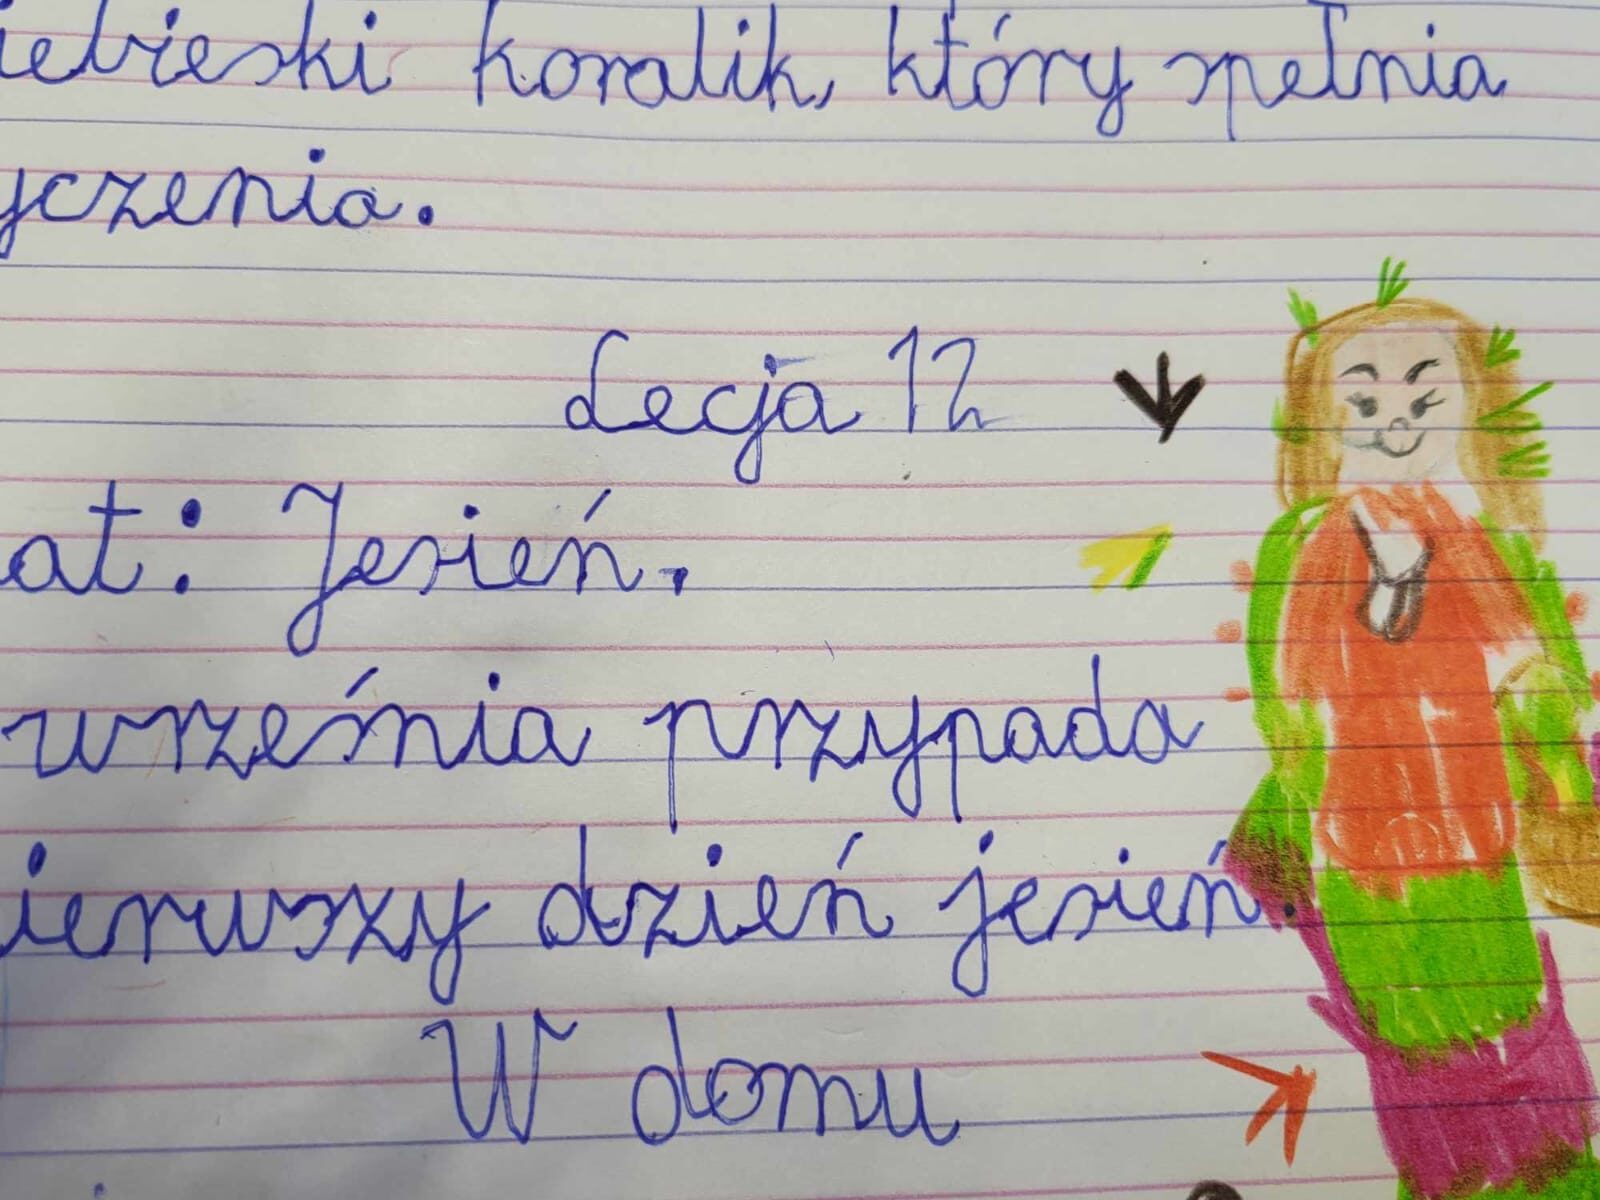 iebieski koralik, który spełnia
yczenia.
Lecja 12
at: Jesień.
września przypada
ierwszy dzień jesień.
W domu